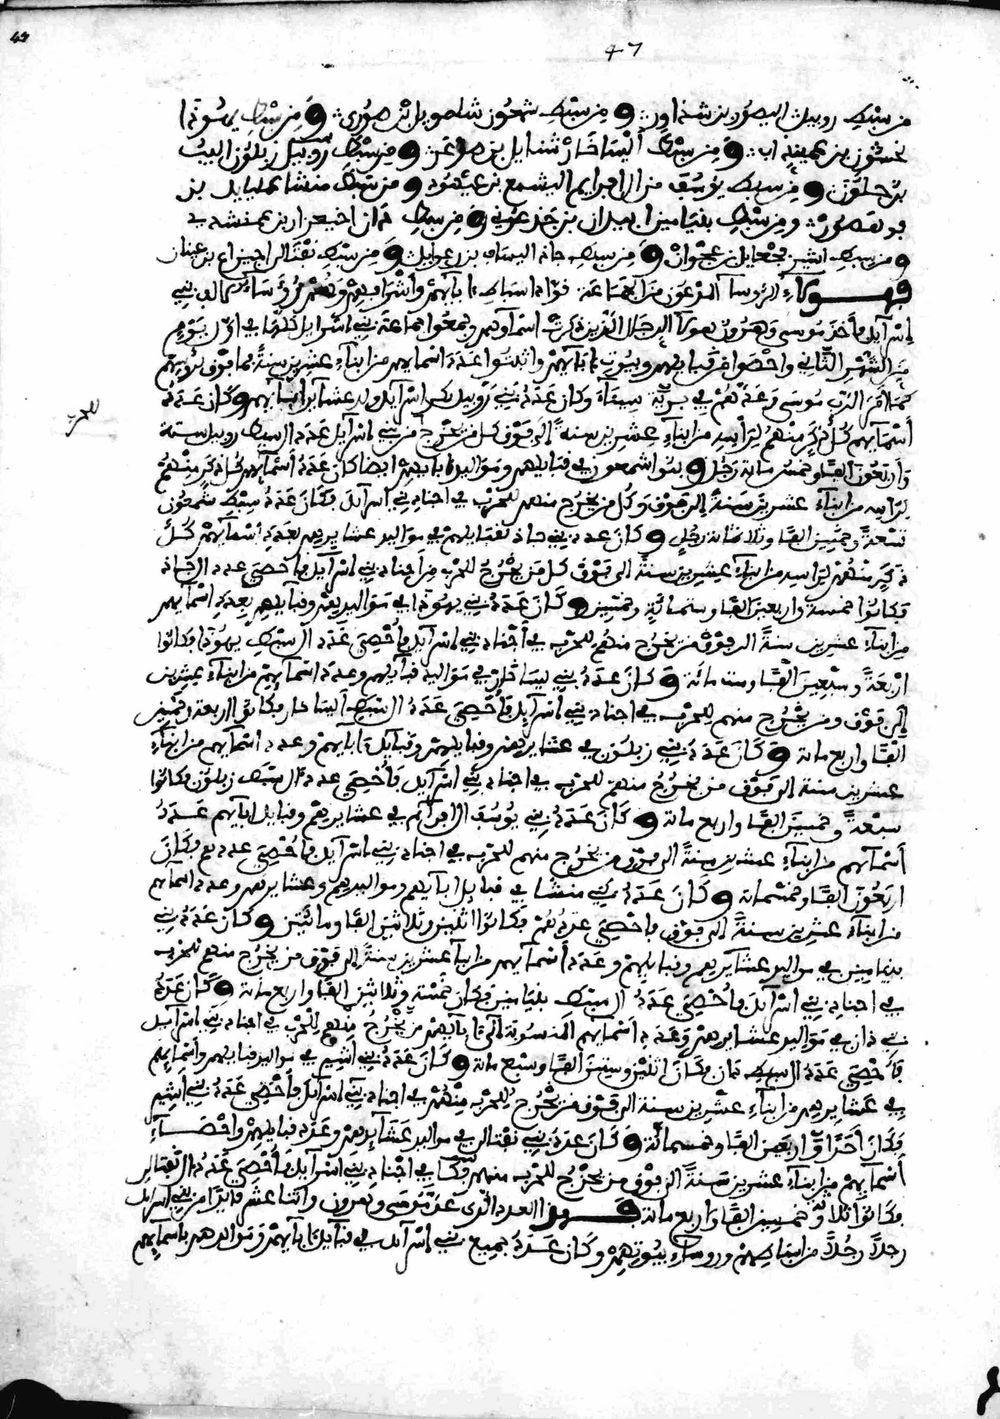 47
من سبك روبيل اليصور بن شذاور ۞ و من سبك شمعون شلمويل بن صوري ۞ و من سبك يهوذا
نحشون بن عميناداب ۞ و من سبك اليساخار نثنايل بن صوعر ۞ و من سبك زبلون الياب
بن حيلون ۞ و من سبك يوسف من ال افرايم اليشمع بن عميهود و من سبك منشا عمليايل بن
فدهصور ۞ و من سبك بنيامين ابيدان بن جذعوني و من سبك دان اخيعزار بن عمنشدي
و من سبك اشير فجعايل بن عجران و من سبك جاد اليساف بن رعوايل و من سبك نفتالي اخيراع بن عينان
فهولاء الروسا المدعون من الجماعة قواد اسباط ابآيهم واشرافهم وهم روساء بني
اسرايل فاخذ موسى وهرون هولاء الرجال الذين ذكرت اسماوهم وجمعوا جماعة بني اسرايل كلها في اول يوم
من الشهر الثاني واحصوا في قبايلهم وبيوت ابآيهم عدد اسمايهم من ابناء عشرين سنة فما فوق
كما امر الرب موسى وعدهم في برية سيناء وكان عدد بني روبيل بكر اسرايل وكان عدد
اسمآيهم كل ذكر منهم براسه من ابناء عشرين سنة الى فوق كل من يخرج من بني اسرايل عدد ال سبك روبيل ستة
واربعون الفا وخمس مائة رجل و بنوا شمعون في قبايلهم ومواليد ابايهم ايضا كان عدد اسمآيهم كل ذكر منهم
براسه من ابناء عشرين سنة الى فوق وكل من يخرج منهم للحرب في اجناد بني اسرايل فكان عدد سبك شمعون
تسعة وخمسين الفا وثلاثمائة رجل و كان عدد بني جاد لقبايلهم في مواليد عشايرهم بعدد اسمآيهم كل
ذكر منهم براسه من ابناء عشرين سنة الى فوق كل من يخرج للحرب من اجناد بني اسرايل فاحصي عدد ال جاد
فكانوا خمسة واربعين الفا وستمائة وخمسين و كان عدد بني يهوذا في مواليدهم وقبايلهم بعدد اسمآيهم
من ابناء عشرين سنة الى فوق من يخرج منهم للحرب في اجناد بني اسرايل فاحصي عدد ال سبك يهوذا فكانوا
اربعة وسبعين الفا وست مائة و كان عدد بني يساخار في مواليد قبآيلهم وعدد اسمآيهم من ابناء عشرين
الى فوق ومن يخرج منهم للحرب في اجناد بني اسرايل فاحصي عدد ال سبك اليساخار فكانوا اربعة وخمسين
الفا واربع مائة و كان عدد بني زبلون في عشايرهم وقبايلهم وقبايل ابآيهم وعدد اسمآيهم من ابناء
عشرين سنة الى فوق من يخرج منهم للحرب في اجناد بني اسرايل فاحصي عدد ال سبك زبلون فكانوا
سبعة وخمسين الفا واربع مائة و كان عدد بني يوسف ال افرآيم في عشايرهم وقبايل ابآيهم عدد
اسمآيهم من ابناء عشرين سنة الى فوق من يخرج منهم للحرب في اجناد بني اسرايل فاحصي عددهم فكان
اربعون الفا وخمسمائة و كان عدد بني منشا في قبايل ابآيهم ومواليدهم وعشايرهم وعدد اسمآيهم
من ابناء عشرين سنة الى فوق فاحصي عددهم فكانوا اثنين وثلاثين الفا ومائتين و كان عدد بني
بنيامين في مواليد عشايرهم وقبايلهم وعدد اسمآيهم من ابناء عشرين سنة الى فوق من يخرج منهم للحرب
في اجناد بني اسرايل فاحصي عدد ال سبك بنيامين فكان خمسة وثلاثين الفا واربع مائة و كان عدد
بني دان في مواليد عشايرهم وعدد اسمآيهم المنسوبة الى ابآيهم من يخرج منهم للحرب في اجناد بني اسرايل
فاحصي عدد ال سبك دان فكان اثنين وستين الفا وسبع مائة و كان عدد بني اشير في مواليد قبايلهم واسمآيهم
في عشايرهم من ابناء عشرين سنة الى فوق من يخرج للحرب منهم في اجناد بني اسرايل فاحصي عدد بني اشير
فكان احدا واربعين الفا وخمسمائة و كان عدد بني نفتالي في مواليد عشآيرهم وعدد قبايلهم واحصاء
اسمآيهم من ابناء عشرين سنة الى فوق من يخرج للحرب منهم في اجناد بني اسرايل فاحصي عدد ال نفتالي
فكانوا ثلاثة وخمسين الفا واربع مائة فهذا العدد الذي عد موسى وهرون واثنا عشر قايدا من بني اسرايل
رجلا رجلا من اسباطهم وروساء بيوتهم وكان عدد جميع بني اسرايل في قبايل ابآيهم ومواليدهم باسمآيهم
للحرب